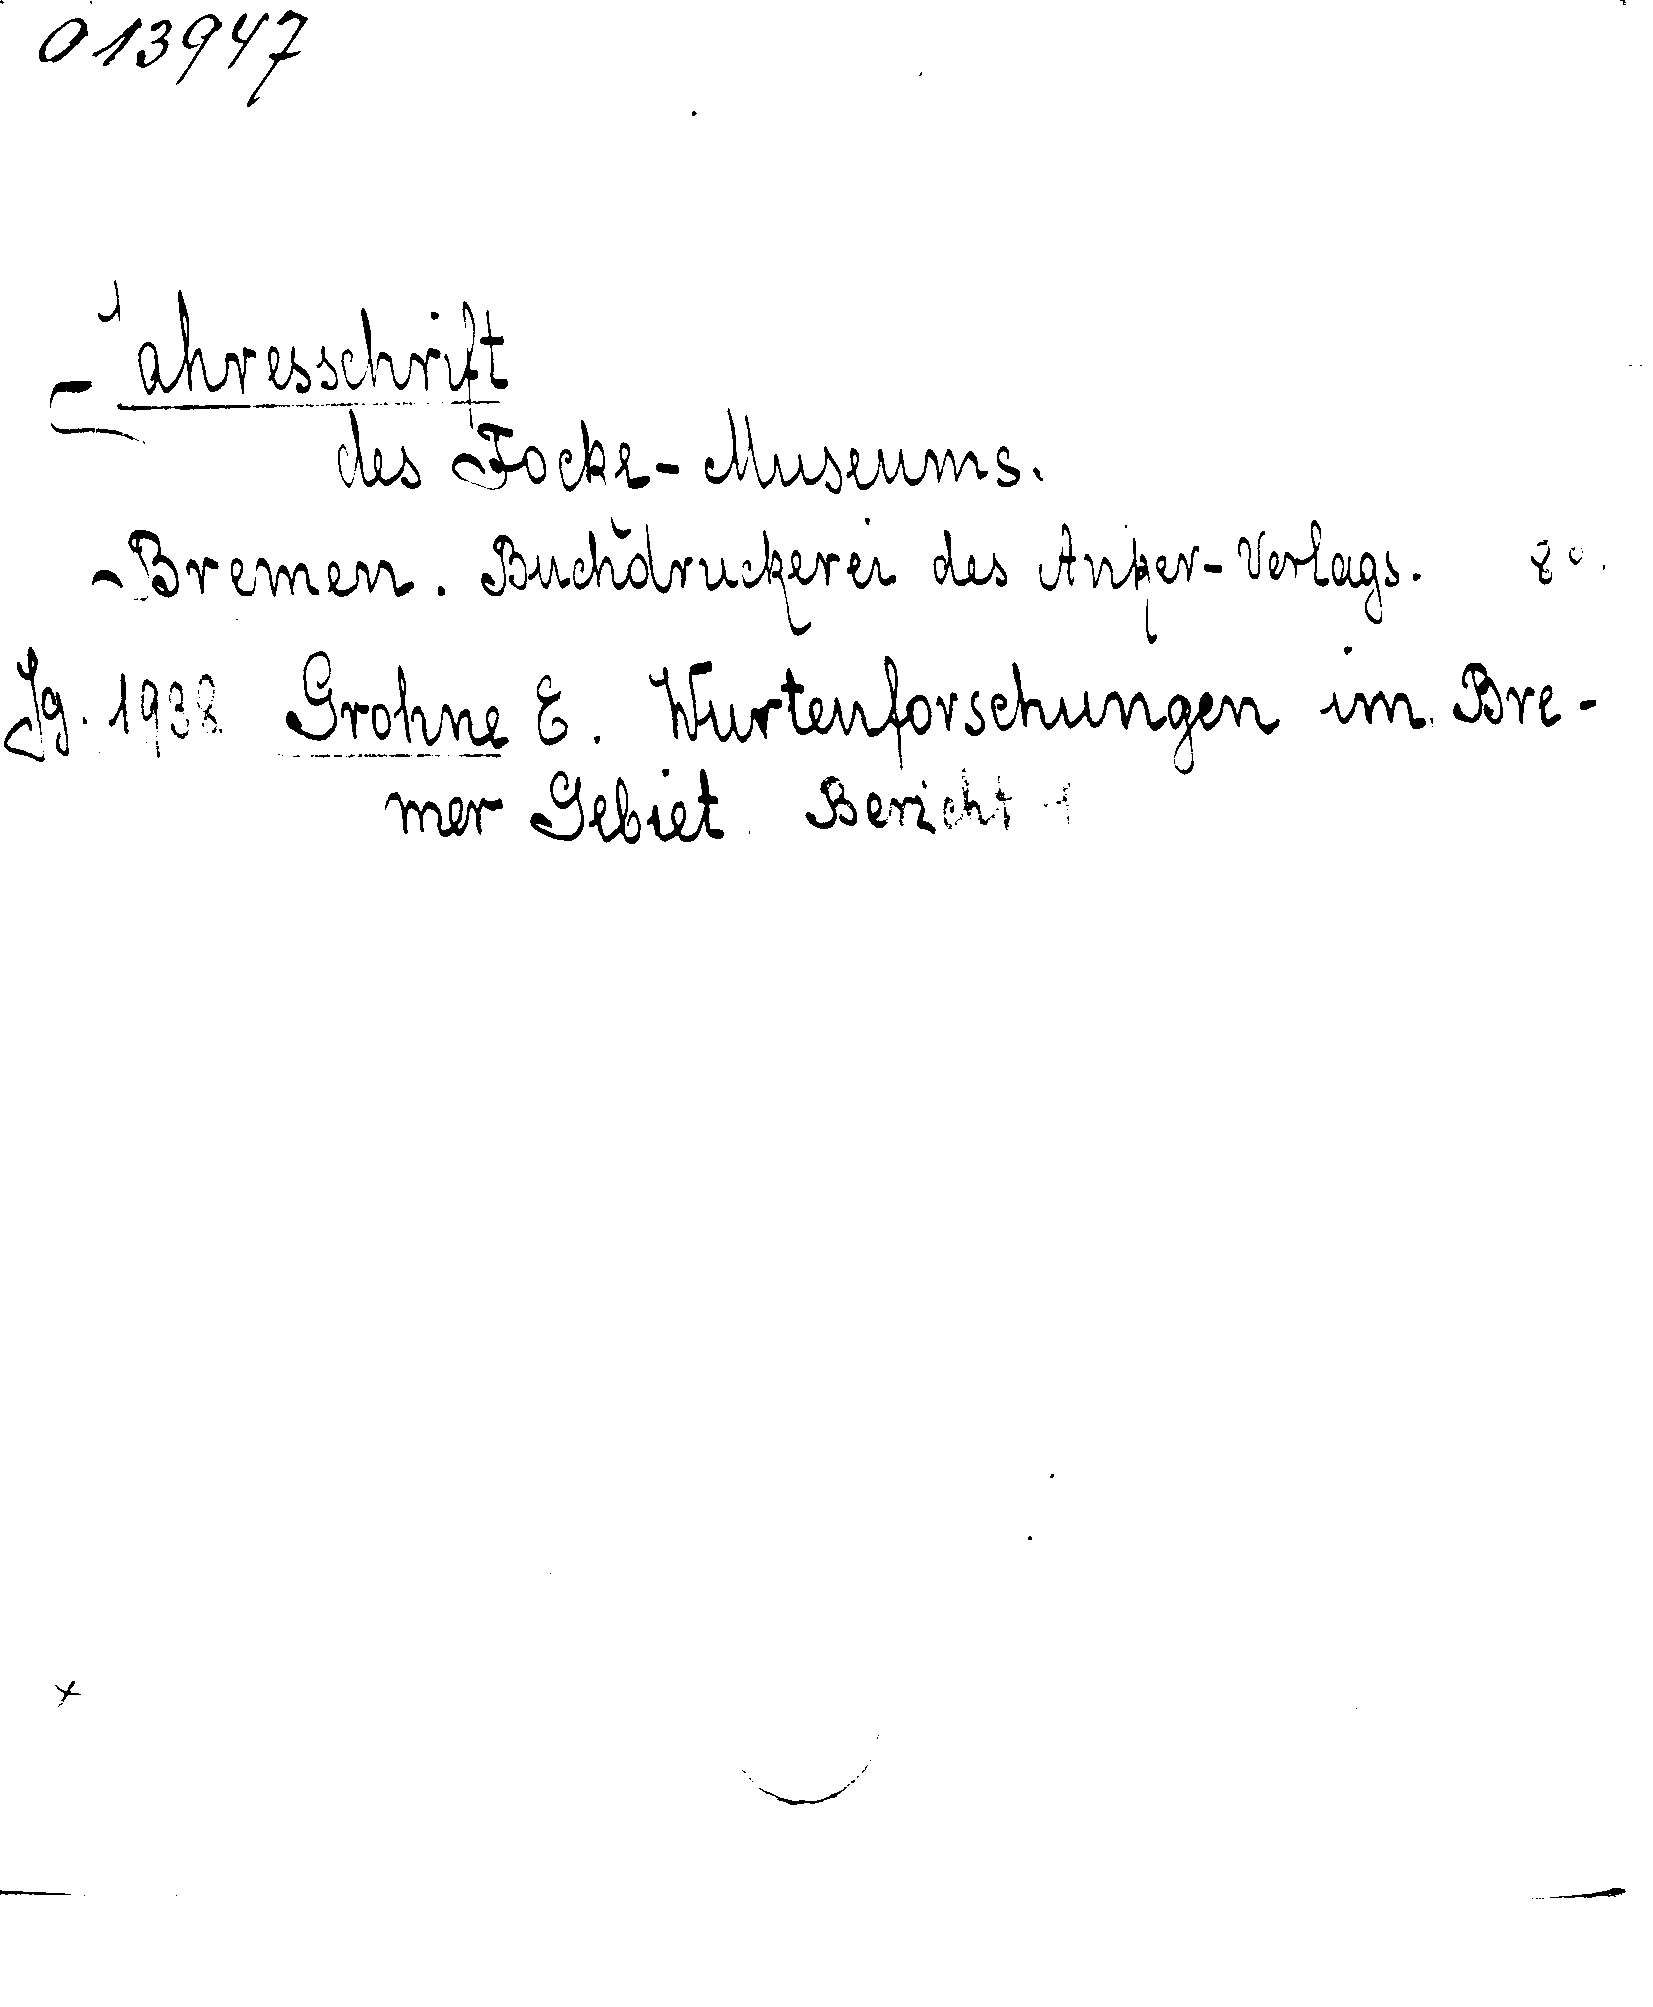 013947
Jahresschrift
des Focke-Museums.
Bremen. Buchdruckerei des Anker-Verlags. 8°.
Jg. 1938 Grohne E. Wurtenforschungen im Bre-
mer Gebiet. Bericht 1